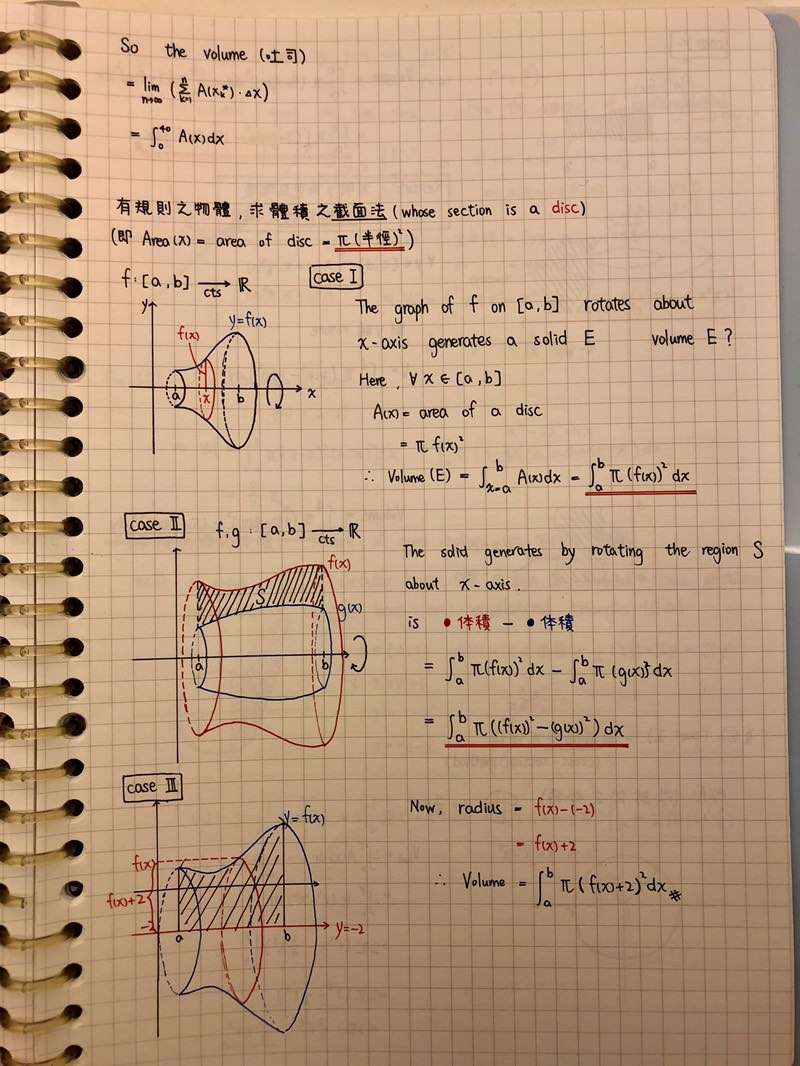 So the volume (吐司)
= lim n→∞ (Σ k=1 n A(xₖ*)·Δx)
= ∫₀⁴⁰ A(x)dx
有規則之物體,求體積之截面法 (whose section is a disc)
(即 Area(x) = area of disc = π(半徑)²)
f : [a,b] → cts ℝ
case I
y
f(x)
y=f(x)
a
x
b
x
The graph of f on [a,b] rotates about
x-axis generates a solid E volume E ?
Here, ∀ x ∈ [a,b]
A(x) = area of a disc
= π f(x)²
∴ Volume (E) = ∫ x=a b A(x)dx = ∫ a b π(f(x))² dx
case II
f,g : [a,b] → cts ℝ
f(x)
S
g(x)
a
b
The solid generates by rotating the region S
about x-axis.
is •体積 - •体積
= ∫ a b π(f(x))² dx - ∫ a b π(g(x))² dx
= ∫ a b π((f(x))² - (g(x))²) dx
case III
y=f(x)
f(x)
f(x)+2
-2
a
b
y=-2
Now, radius = f(x)-(-2)
= f(x)+2
∴ Volume = ∫ a b π(f(x)+2)² dx※